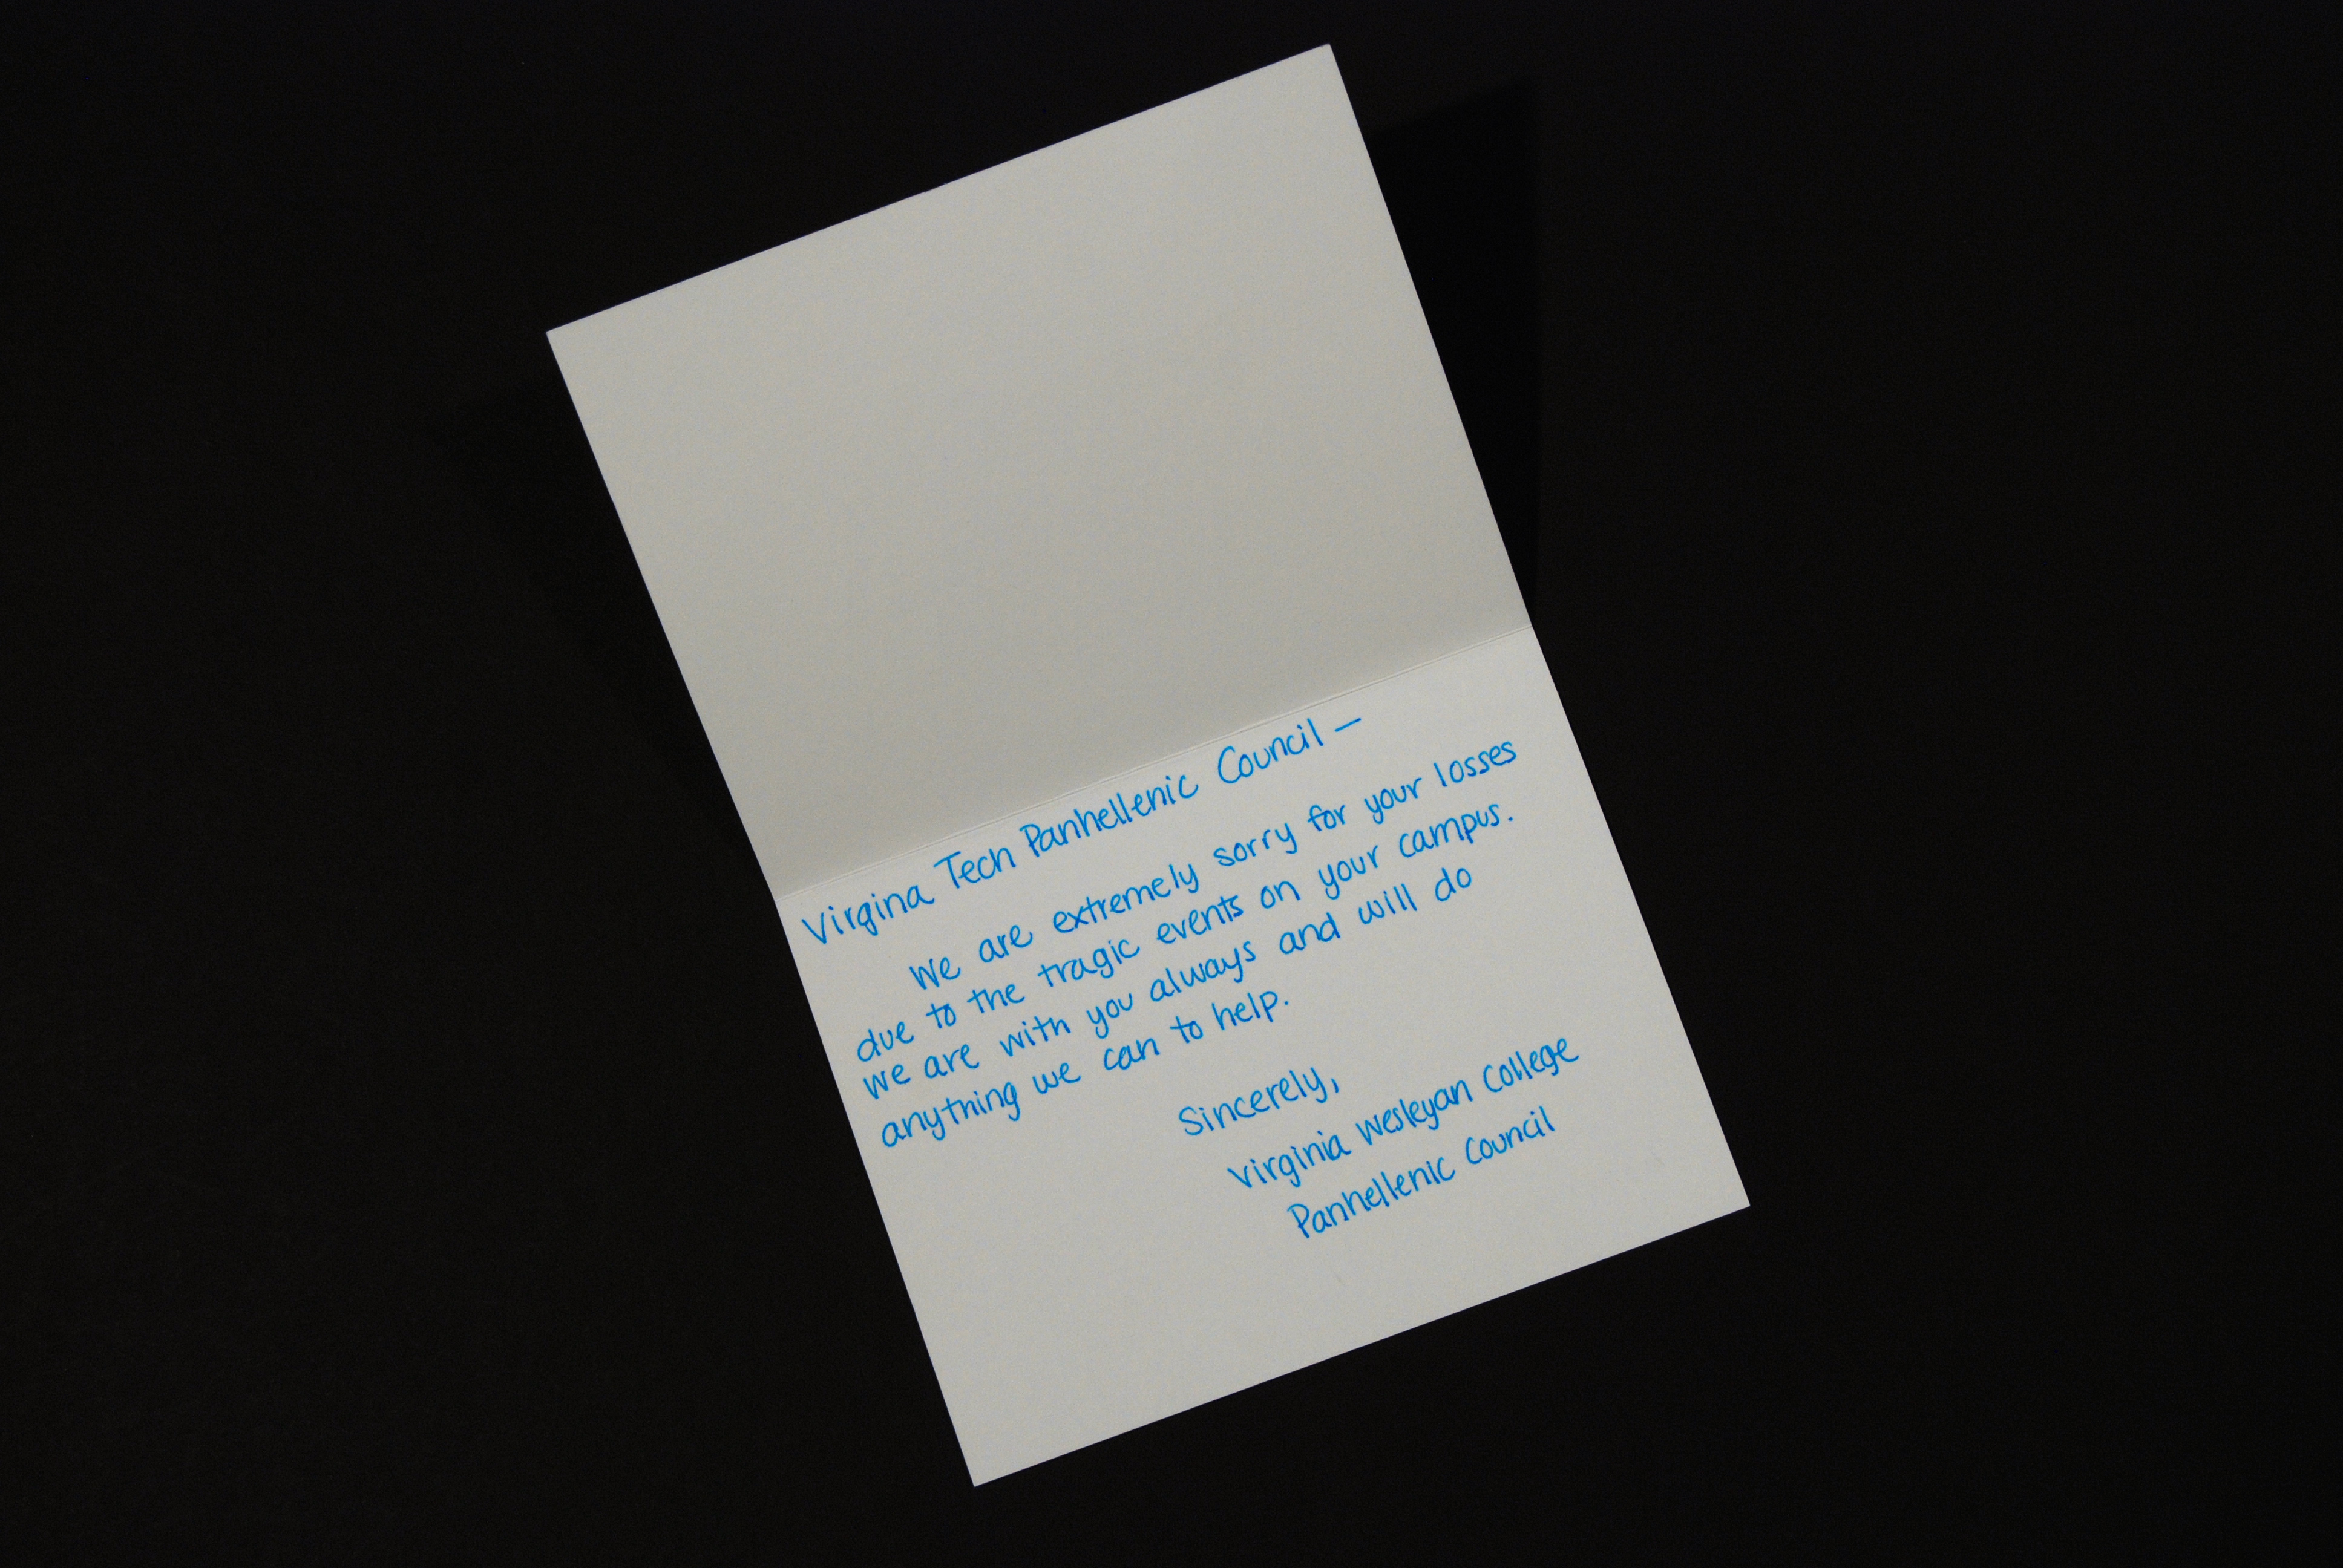 Virgina Tech Panhellenic Council —
We are extremely sorry for your losses
due to the tragic events on your campus.
We are with you always and will do
anything we can to help.
Sincerely,
Virginia Wesleyan College
Panhellenic Council